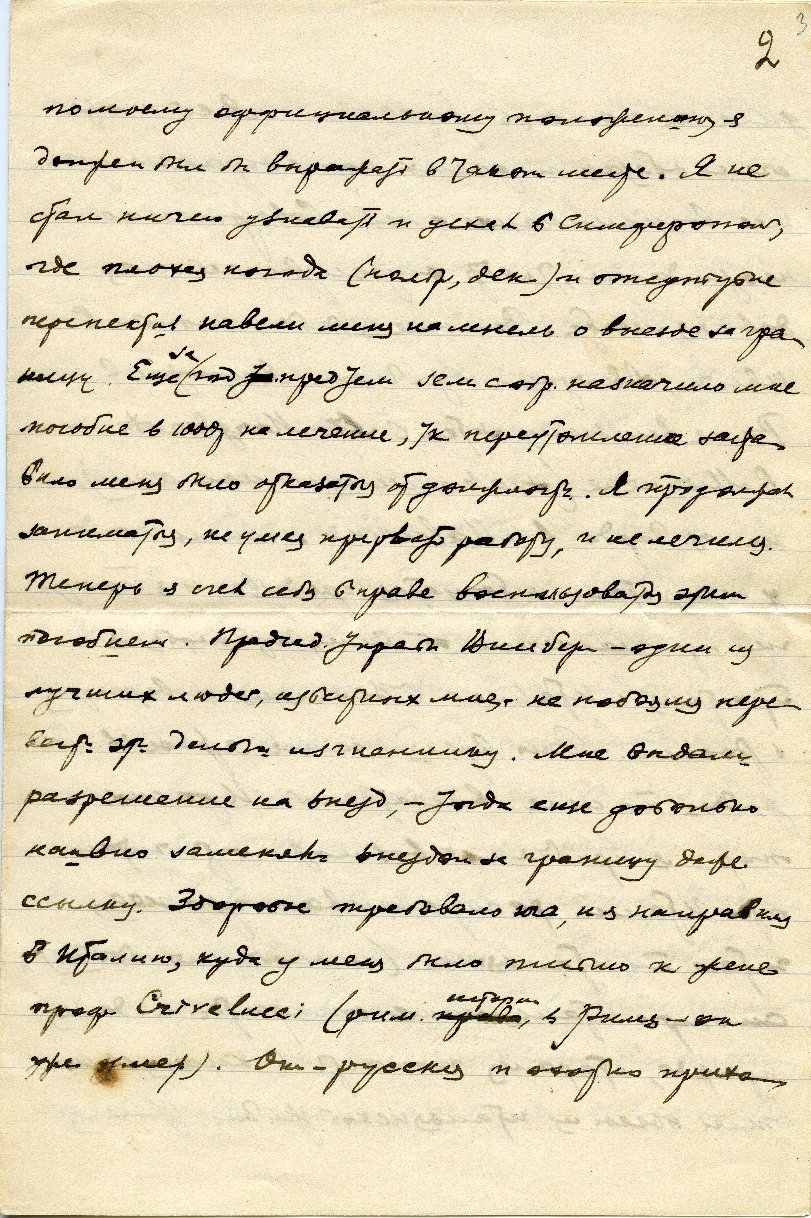 3
2
по моему оффициальному положению я
должен был бы выезжать в таком месте. Я не
стал ничего узнавать и уехал в Симферополь,
где плохая погода (ноябр, дек.) и отсутствие
перспектив навели меня на мысль о выезде загра
ницу. Еще за год пред тем зем собр. назначило мне
пособие в 1000р на лечение, тк переутомление заста
вило меня было отказаться от должности. Я продолжал
заниматься, не умея прервать работу, и не лечился.
Теперь я счел себя в праве воспользоваться этим
пособием. Председ. управы Винберг – один из
лучших людей, известных мне, не побоялся пере
вести эти деньги изгнаннику. Мне выдали
разрешение на выезд, – тогда еще довольно
наивно заменяли выездом за границу даже
ссылку. Здоровье требовало юга, и я направился
в Италию, куда у меня было письмо к жене
проф Crivelucci (рим. истории, в Риме – он
уже умер). Она – русская и охотноприха